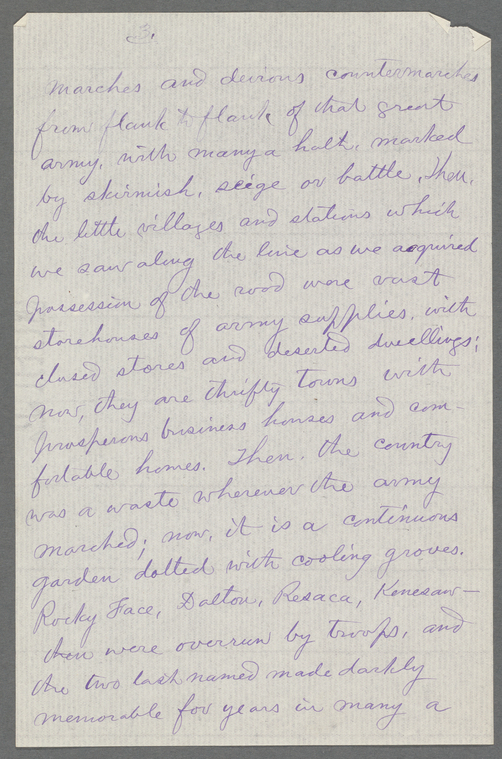 3.
marches and devious countermarches
from flank to flank of that great
army, with many a halt, marked
by skirmish, seige or battle. Then,
the little villages and stations which
we saw along the line as we acquired
possession of the road were vast
storehouses of army supplies, with
closed stores and deserted dwellings;
now, they are thrifty towns with
prosperous business houses and com-
fortable homes. Then, the country
was a waste wherever the army
marched; now, it is a continuous
garden dotted with cooling groves.
Rocky Face, Dalton, Resaca, Kenesaw—
then were overrun by troops, and
the two last named made darkly
memorable for years in many a